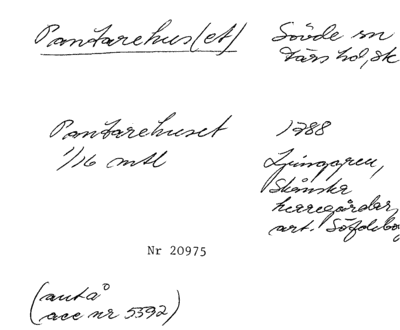 Pantarehus(et)
Sövde sn
Färs hd, Sk
Pantarehuset
1/16 mtl
1788
Ljunggren,
Skånska
herregårdar,
art. Söfdebo
Nr 20975
(antå
acc nr 5392)